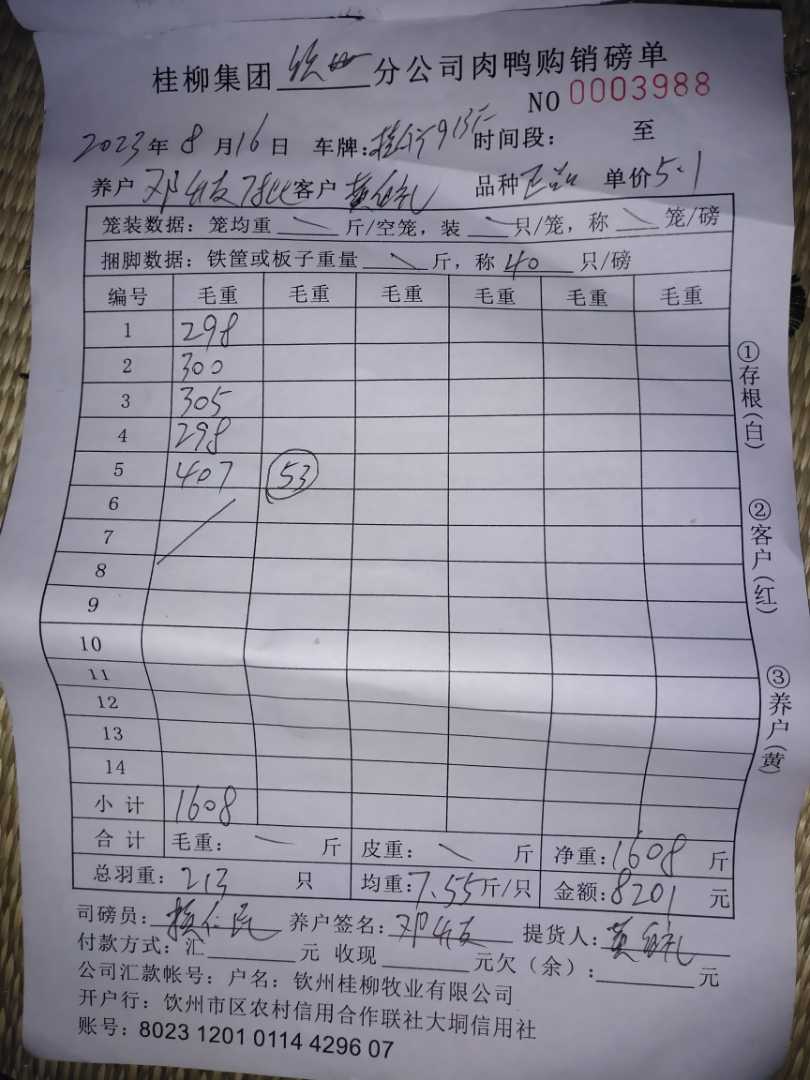 桂柳集团 钦州 分公司肉鸭购销磅单
NO 0003988
2023年8月16日 车牌: 时间段: 至
养户 邓 客户 黄 品种 正品 单价5.1
笼装数据：笼均重 \ 斤/空笼，装 \ 只/笼，称 \ 笼/磅
捆脚数据：铁筐或板子重量 \ 斤，称 40 只/磅
编号 毛重 毛重 毛重 毛重 毛重 毛重
1 298
2 300
3 305
4 298
5 407 53
6
7
8
9
10
11
12
13
14
小 计 1608
合 计 毛重： \ 斤 皮重： \ 斤 净重：1608 斤
总羽重：213 只 均重：7.55斤/只 金额：8201 元
司磅员： 养户签名：邓 提货人：黄
付款方式：汇 元 收现 元欠（余）： 元
公司汇款帐号：户名：钦州桂柳牧业有限公司
开户行：饮州市区农村信用合作联社大垌信用社
账号：8023 1201 0114 4296 07
①存根(白)
②客户(红)
③养户(黄)